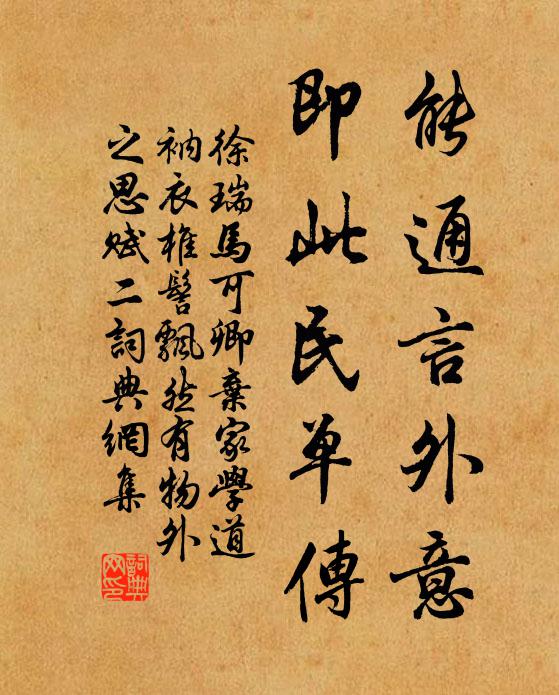 能通言外意
即此民单傳
徐瑞馬可卿棄家學道
衲衣椎髻飄然有物外
之思賦二詞典網集
詞典網印